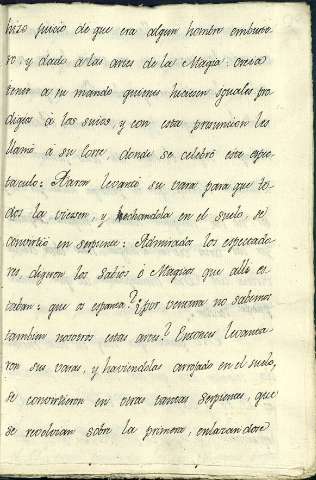 hizo juicio de que era algun hombre embuste
ro, y dado à las artes de la Magia: creia
tener a su mando quienes hiciesen iguales pro
digios à los suios, y con esta presuncion les
llamó à su Corte, donde se celebró este espec
taculo: Aaron levantó su vara para que to
dos la viesen, y hechandola en el suelo, se
convirtio en serpiente: Admirados los espectado
res, digeron los Sabios ò Magicos que alli es
taban: que os espanta? ¿por ventura no sabemos
tambien nosotros estas artes? Entonces levanta
ron sus varas, y haviendolas arrojado en el suelo,
se convirtieron en otras tantas serpientes, que
se revolvian sobre la primera, enlazandose